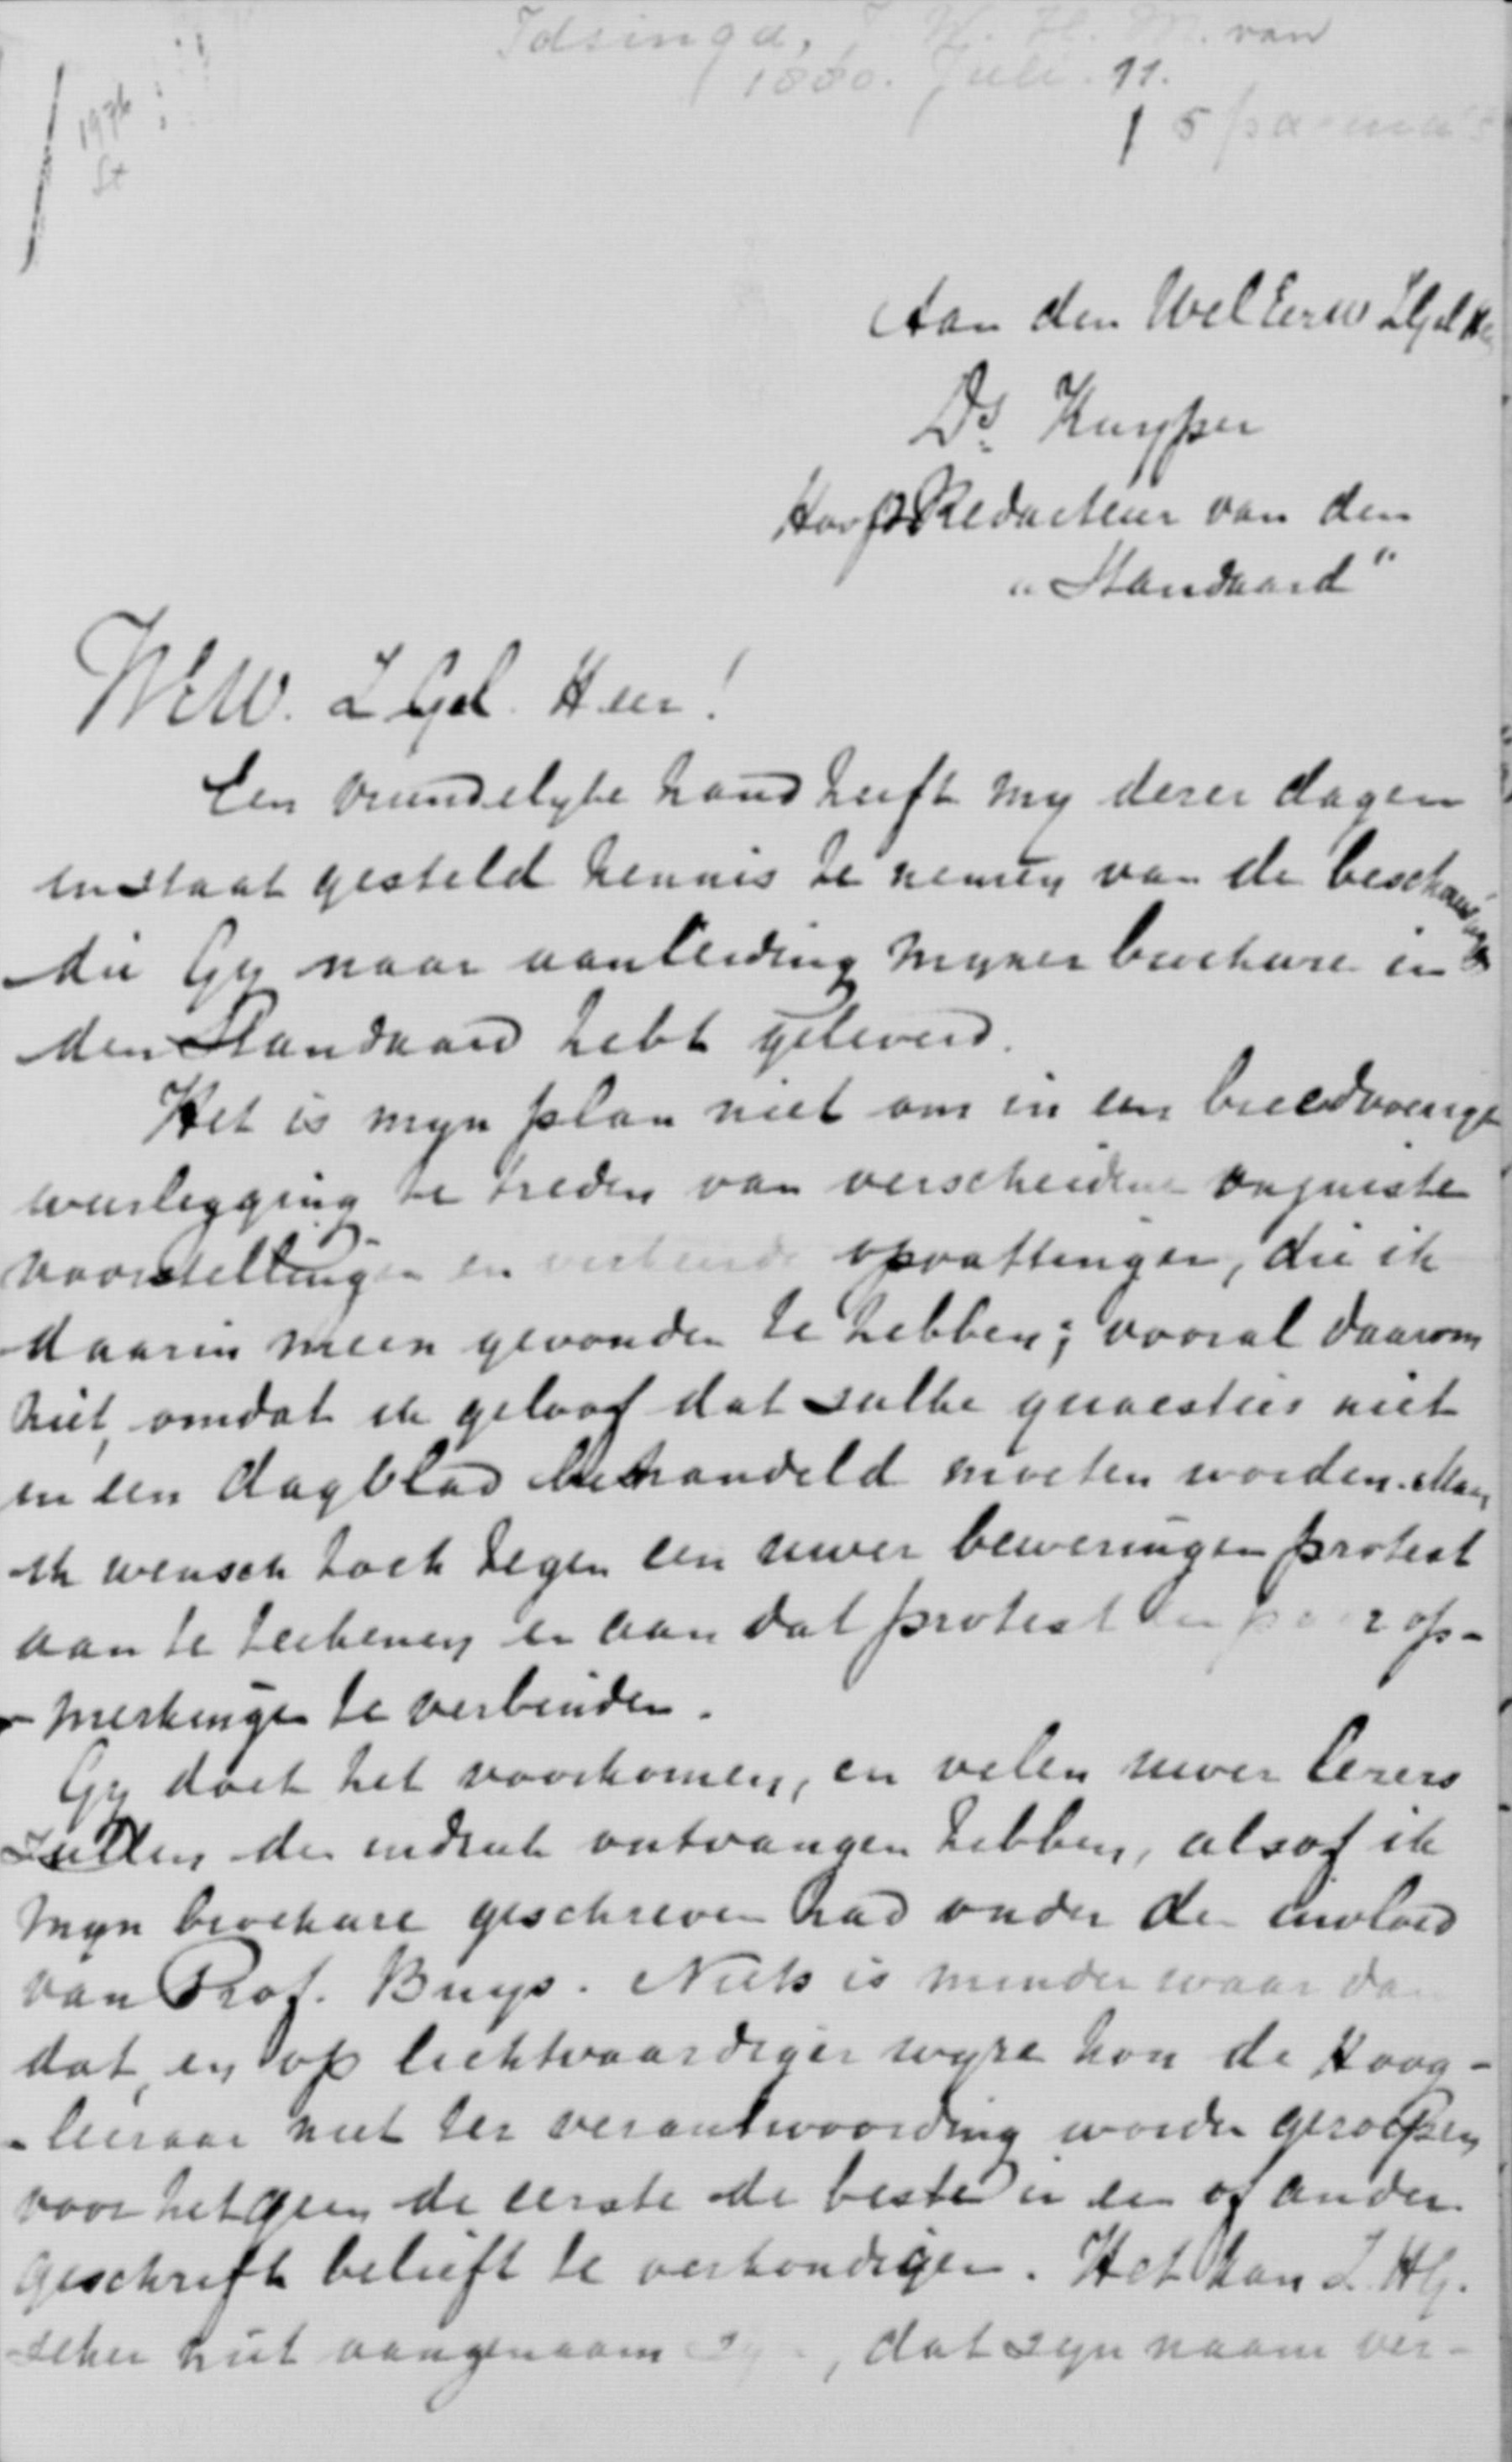 Idsinga, J. W. H. M. van
1880. Juli. 11.
5 pagina's
1976
St
Aan den WelEerw ZGel
Ds. Kuyper
HoofdRedacteur van den
„Standaard"
WEW. ZGel. Heer!
Een vriendelyke hand heeft my dezer dagen
in staat gesteld kennis te nemen van de beschouwingen
die Gy naar aanleiding myner brochure in
den Standaard hebt geleverd.
Het is myn plan niet om in een breedvoerige
weerlegging te treden van verscheidene onjuiste
voorstellingen en verkeerde opvattingen, die ik
daarin meen gevonden te hebben; vooral daarom
niet, omdat ik geloof dat zulke quaesties niet
in een dagblad behandeld moeten worden. Maar
ik wensch toch tegen een uwer beweringen protest
aan te teekenen en aan dat protest een paar op-
- merkingen te verbinden.
Gy doet het voorkomen, en velen uwer lezers
zullen den indruk ontvangen hebben, alsof ik
myn brochure geschreven had onder den invloed
van Prof. Buys. Niets is minder waar dan
dat, en op lichtvaardiger wyze kon de Hoog-
- leeraar niet ter verantwoording worden geroepen
voor hetgeen de eerste de beste in een of ander
geschrift belieft te verkondigen. Het kan Z.HG.
zeker niet aangenaam zyn, dat zyn naam ver-